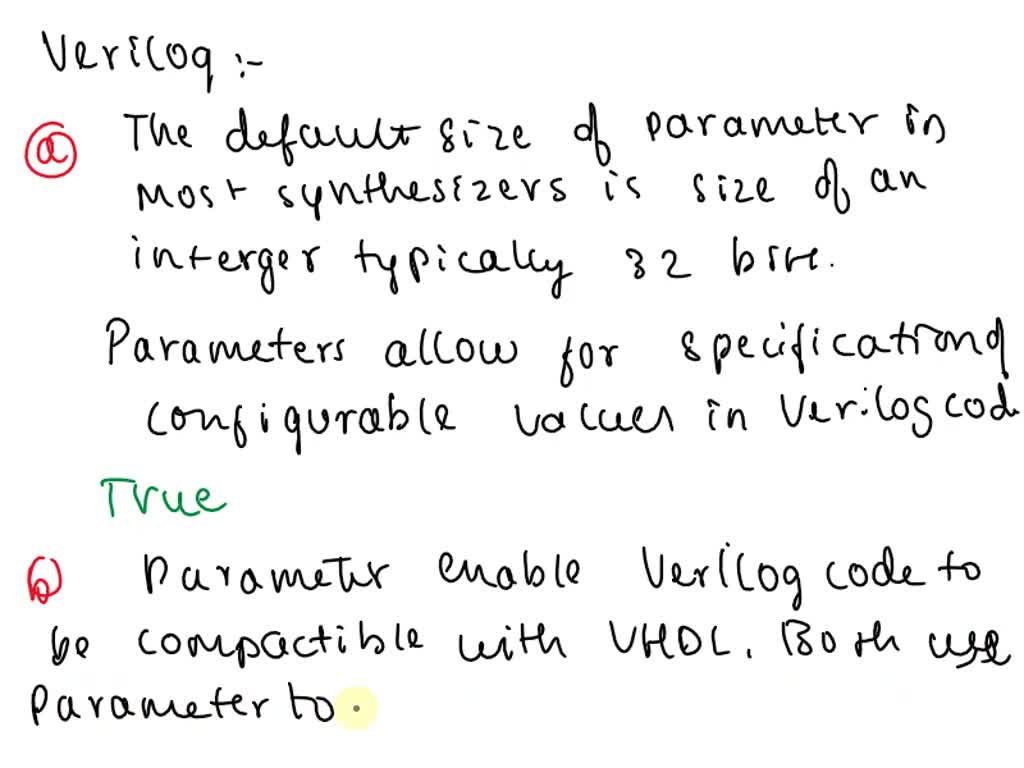 Verilog :-
(a) The default size of parameter in
most synthesizers is size of an
interger typically 32 bits.
Parameters allow for specification of
configurable values in Verilog code
True
b) Parameter enable Verilog code to
be compactible with VHDL. Both use
Parameter to